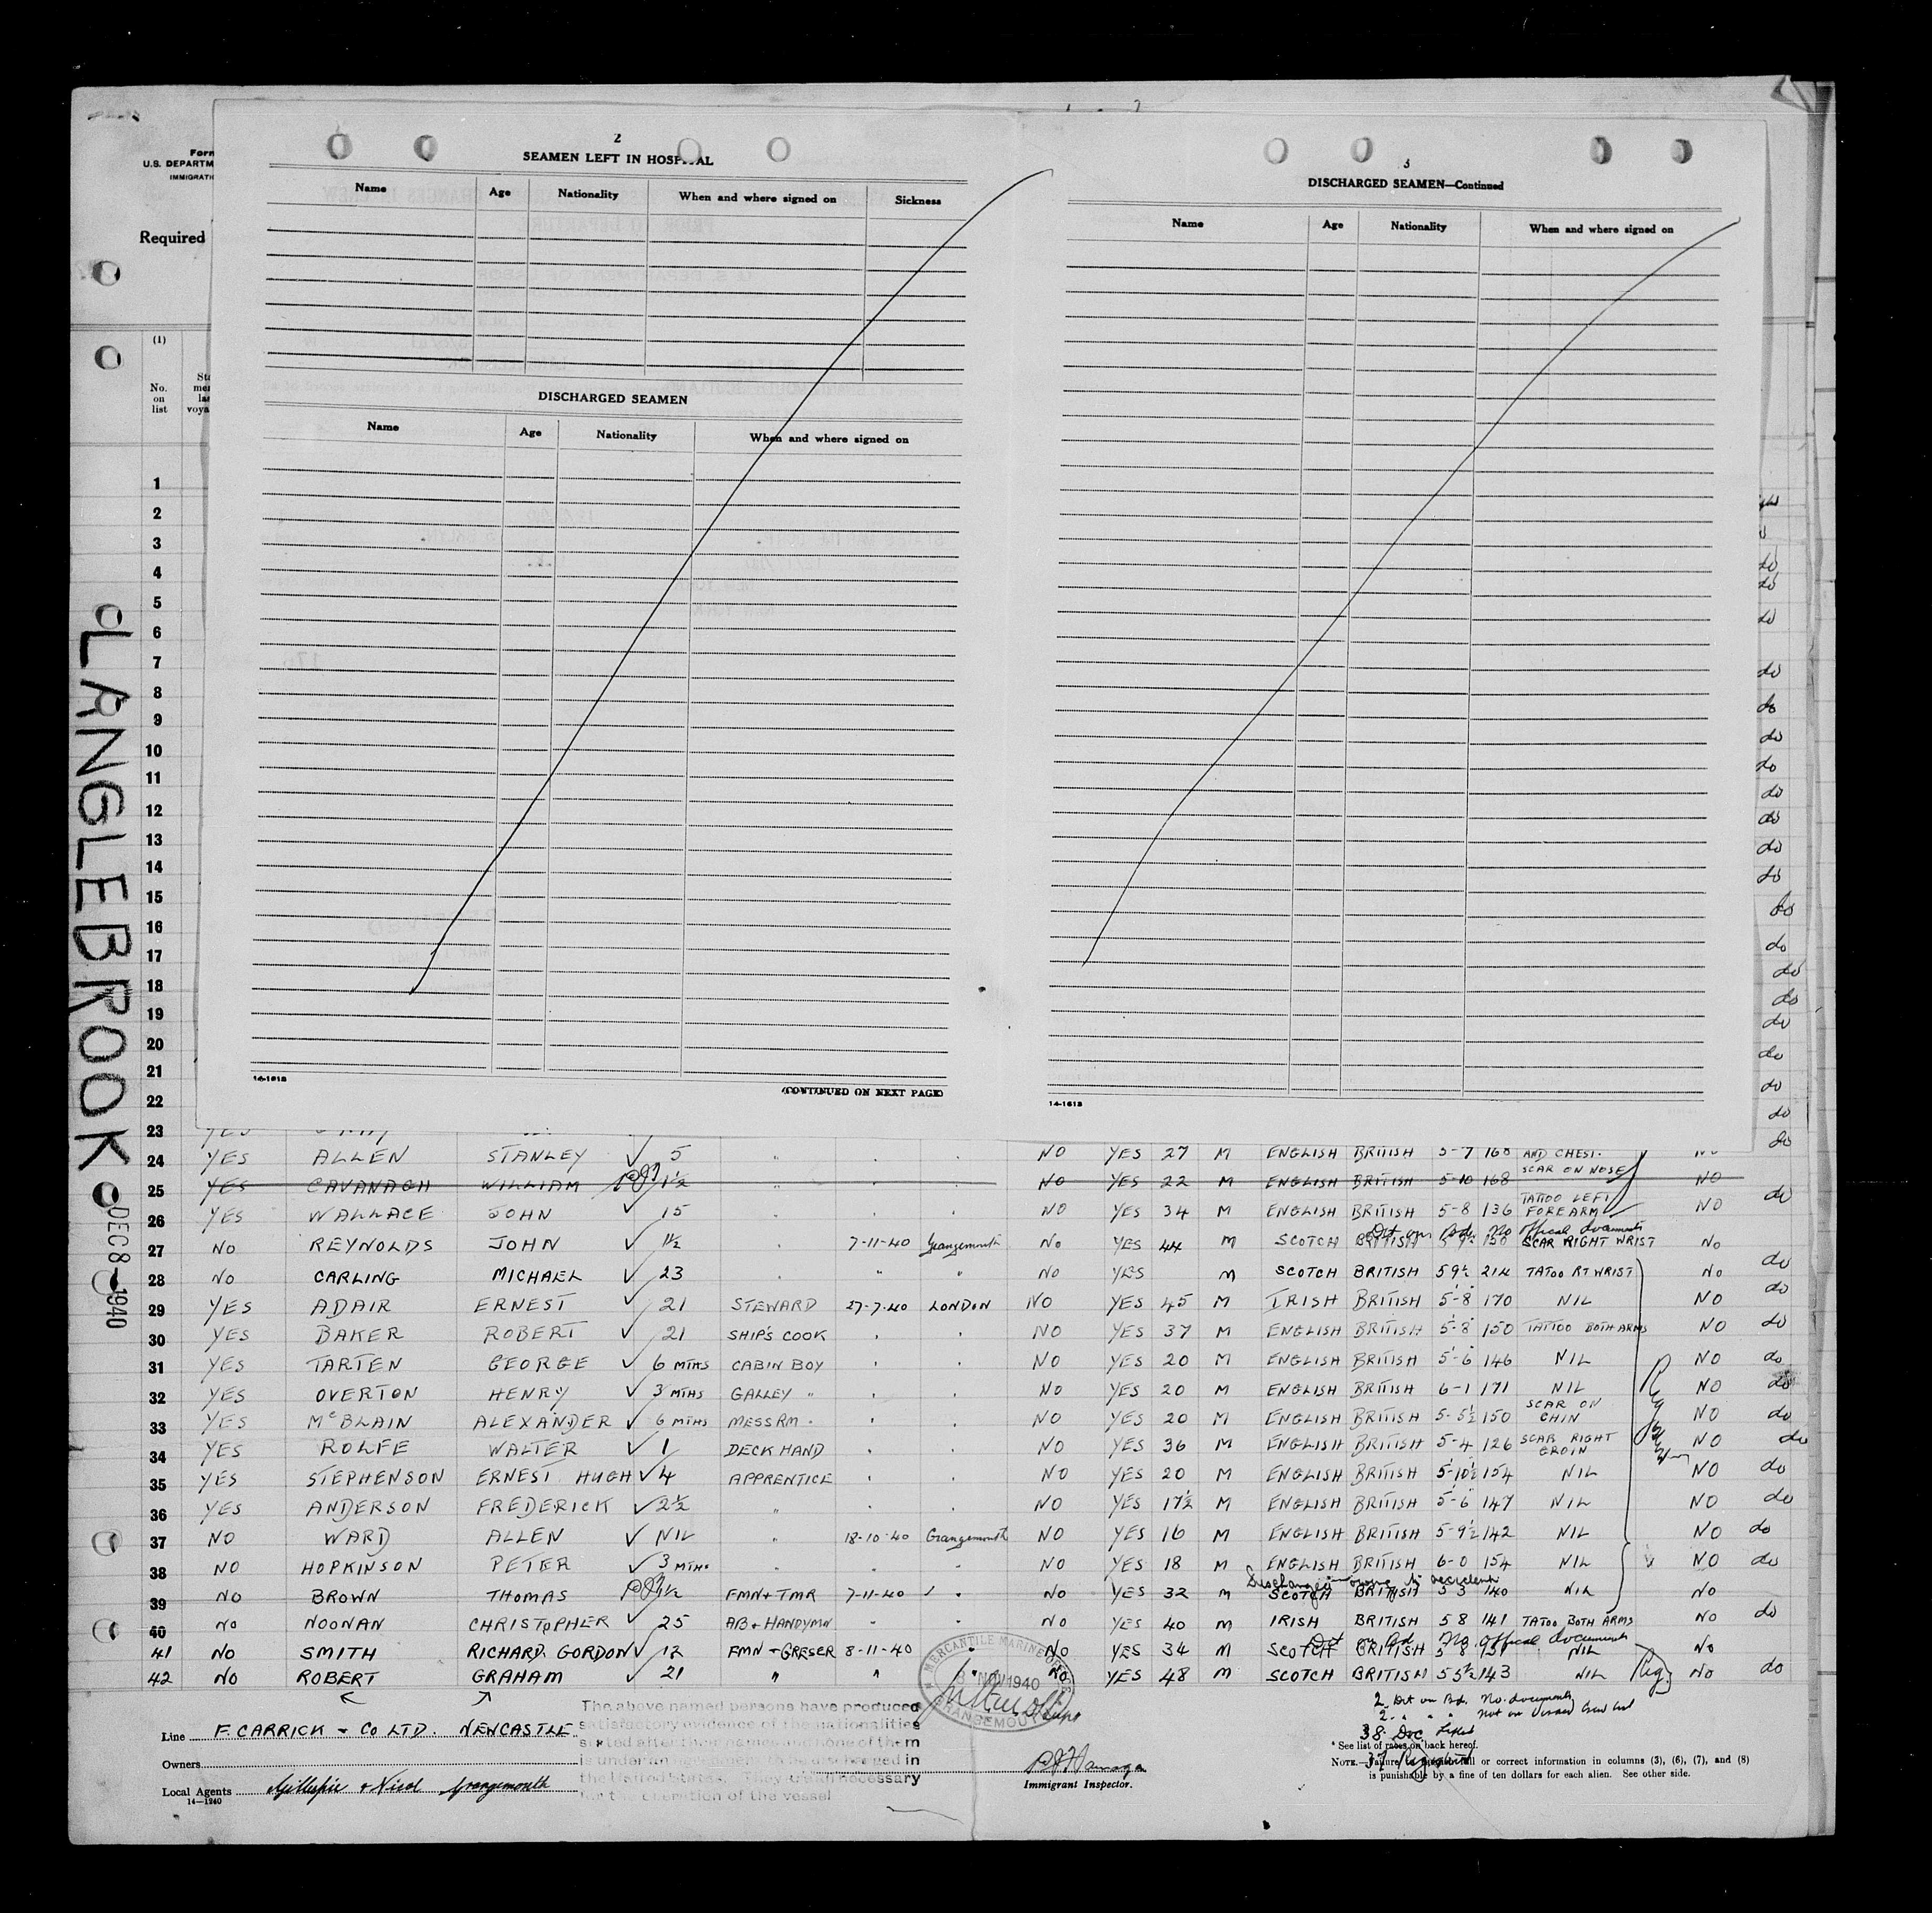 Form
U.S. DEPARTM
IMMIGRATI
Required
(1)
No. on list
2
SEAMEN LEFT IN HOSPITAL
Name Age Nationality When and where signed on Sickness
DISCHARGED SEAMEN
Name Age Nationality When and where signed on
14-1618
(CONTINUED ON NEXT PAGE)
3
DISCHARGED SEAMEN—Continued
Name Age Nationality When and where signed on
14-1618
LANGLEBROOK
DEC 8 - 1940
1
2
3
4
5
6
7
8
9
10
11
12
13
14
15
16
17
18
19
20
21
22
23 YES
24 YES ALLEN STANLEY ✓ 5 " . . NO YES 27 M ENGLISH BRITISH 5-7 160 AND CHEST.
25 YES CAVANAGH WILLIAM 1½ " . . NO YES 22 M ENGLISH BRITISH 5-10 168 SCAR ON NOSE NO
26 YES WALLACE JOHN ✓ 15 . . . NO YES 34 M ENGLISH BRITISH 5-8 136 TATOO LEFT FOREARM NO do
Det on Bd. No offical documents
27 NO REYNOLDS JOHN ✓ 1½ . 7-11-40 Grangemouth NO YES 44 M SCOTCH BRITISH 150 SCAR RIGHT WRIST NO
28 NO CARLING MICHAEL ✓ 23 . " " NO YES M SCOTCH BRITISH 59½ 214 TATOO RT WRIST NO do
29 YES ADAIR ERNEST ✓ 21 STEWARD 27-7-40 LONDON NO YES 45 M IRISH BRITISH 5-8 170 NIL NO do
30 YES BAKER ROBERT ✓ 21 SHIP'S COOK . . NO YES 37 M ENGLISH BRITISH 5-8 150 TATTOO BOTH ARMS NO do
31 YES TARTEN GEORGE ✓ 6 MTHS CABIN BOY . . NO YES 20 M ENGLISH BRITISH 5-6 146 NIL NO do
32 YES OVERTON HENRY ✓ 3 MTHS GALLEY " . . NO YES 20 M ENGLISH BRITISH 6-1 171 NIL NO do
33 YES McBLAIN ALEXANDER ✓ 6 MTHS MESSRM . . . NO YES 20 M ENGLISH BRITISH 5-5½ 150 SCAR ON CHIN NO do
34 YES ROLFE WALTER ✓ 1 DECK HAND . . NO YES 36 M ENGLISH BRITISH 5-4 126 SCAR RIGHT GROIN NO do
35 YES STEPHENSON ERNEST HUGH ✓ 4 APPRENTICE . . NO YES 20 M ENGLISH BRITISH 5-10½ 154 NIL NO do
36 YES ANDERSON FREDERICK ✓ 2½ " . . NO YES 17½ M ENGLISH BRITISH 5-6 147 NIL NO do
37 NO WARD ALLEN ✓ NIL " 18-10-40 Grangemouth NO YES 16 M ENGLISH BRITISH 5-9½ 142 NIL NO do
38 NO HOPKINSON PETER ✓ 3 MTHS . . . NO YES 18 M ENGLISH BRITISH 6-0 154 NIL NO do
Discharged owing to accident
39 NO BROWN THOMAS 1½ FMN+TMR 7-11-40 NO YES 32 M SCOTCH BRITISH 5 3 140 NIL NO
40 NO NOONAN CHRISTOPHER ✓ 25 AB+HANDYMN " . NO YES 40 M IRISH BRITISH 5 8 141 TATOO BOTH ARMS NO do
Det on Bd. No. offical documents
41 NO SMITH RICHARD GORDON ✓ 12 FMN+GRESER 8-11-40 " NO YES 34 M SCOTCH BRITISH 5 8 151 NIL NO
42 NO ROBERT GRAHAM ✓ 21 " " " NO YES 48 M SCOTCH BRITISH 5 5½ 143 NIL Reg. NO do
MERCANTILE MARINE OFFICE
NOV 1940
GRANGEMOUTH
The above named persons have produced
satisfactory evidence of the nationalities
stated after their names and none of them
is under an to be discharged in
the United States. They are all necessary
for the operation of the vessel
Line F. CARRICK & CO LTD. NEWCASTLE.
Owners
Local Agents Gillespie & Nicol Grangemouth
14—1240
Immigrant Inspector.
2 Det on Bd. No. documents
2 " " " Not on Visaed Crew List
38 Doc
* See list of races on back hereof.
NOTE.—Failure to full or correct information in columns (3), (6), (7), and (8)
is punishable by a fine of ten dollars for each alien. See other side.